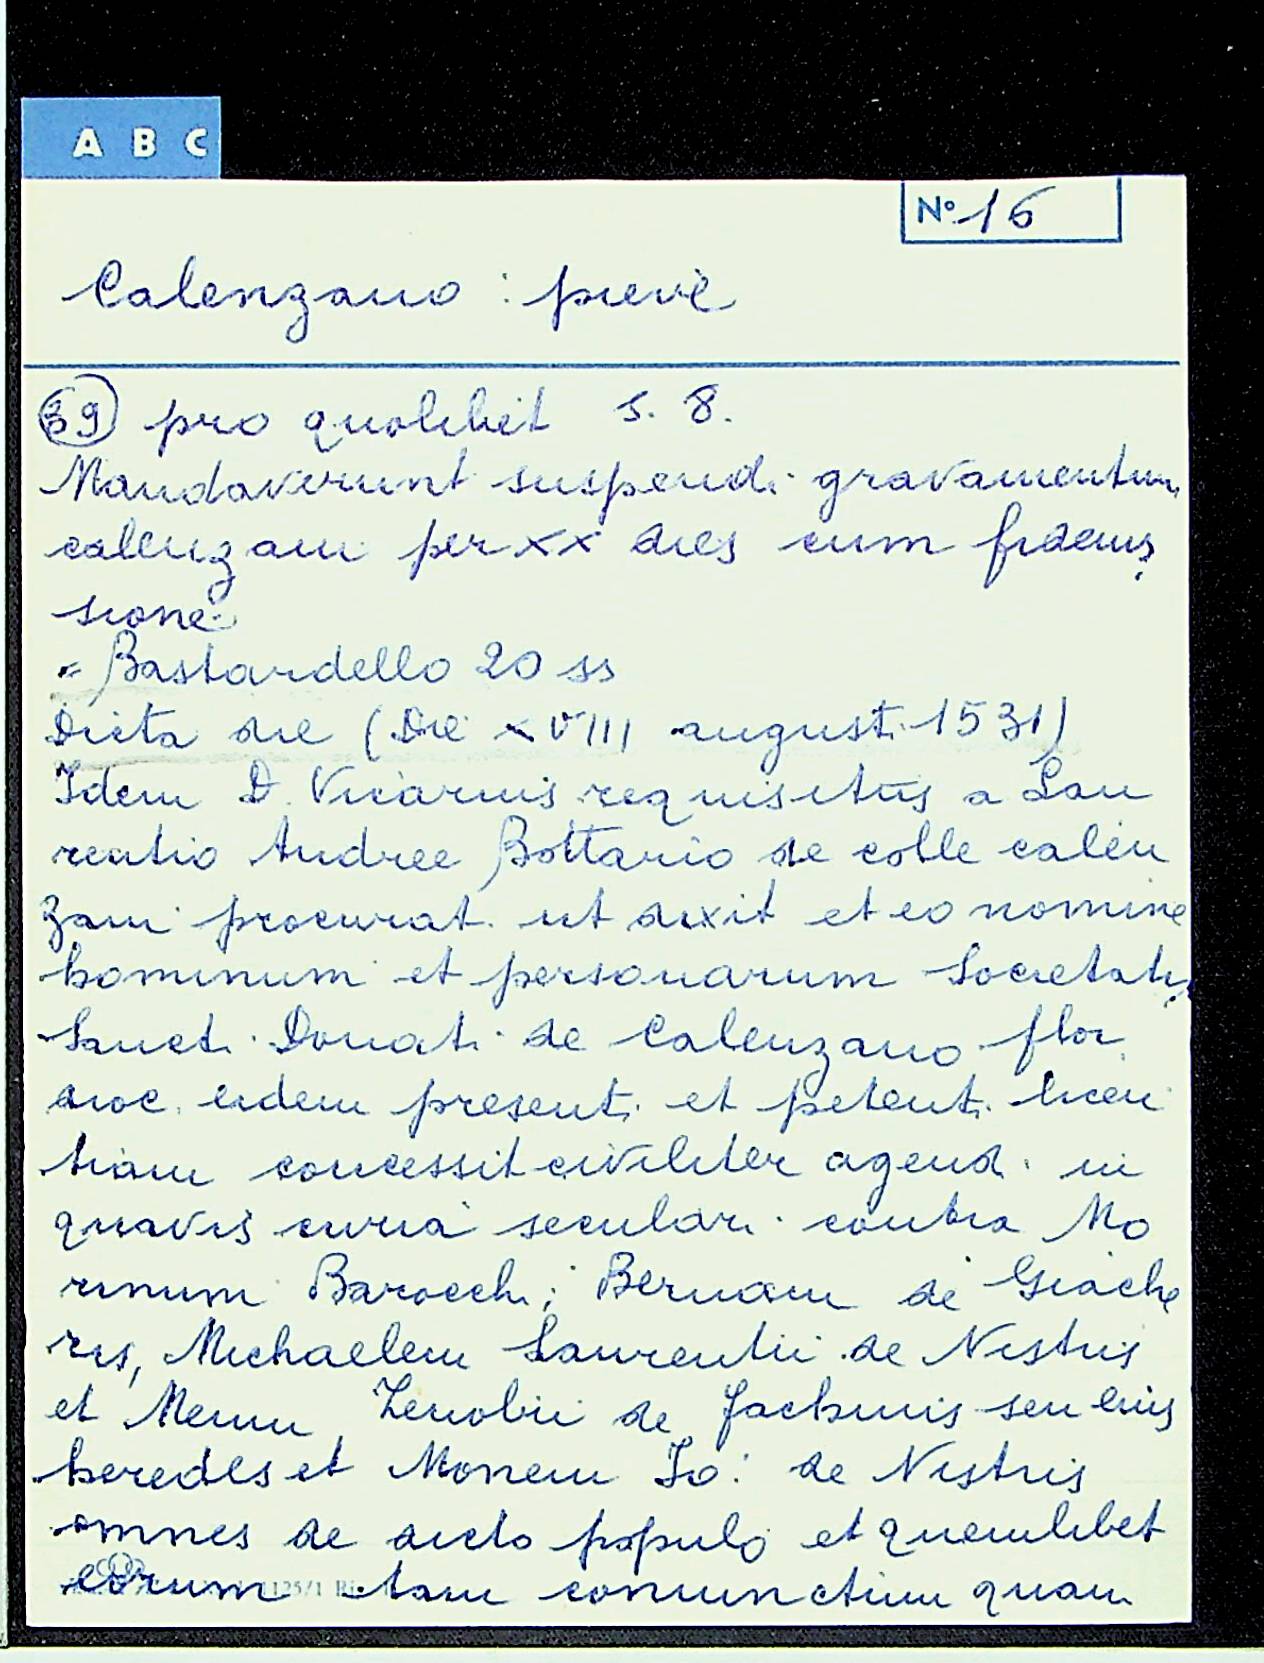 A B C
Nº 16
Calenzano : pieve
39 pro quolibet s. 8.
Mandaverunt suspendi gravamentum
calenzani per XX dies cum fideius
sione
= Bastardello 20 ss
Dicta die (Die XVIII augusti 1531)
Idem D. Vicarius requisitus a Lau
rentio Andree Bottario de colle calen
zani procurat. ut dixit et eo nomine
hominum et personarum Societatis
Sancti Donati de Calenzano flor.
dioc. eidem presenti et petenti licen
tiam concessit civiliter agendi in
quavis curia seculari contra Mo
rinum Barocchi; Bernam de Giache
ris, Michaelem Laurentii de Nistris
et Meum Zenobii de Jachinis seu eius
heredes et Monem Jo: de Nistris
omnes de dicto populo et quemlibet
eorum tam coniunctim quam